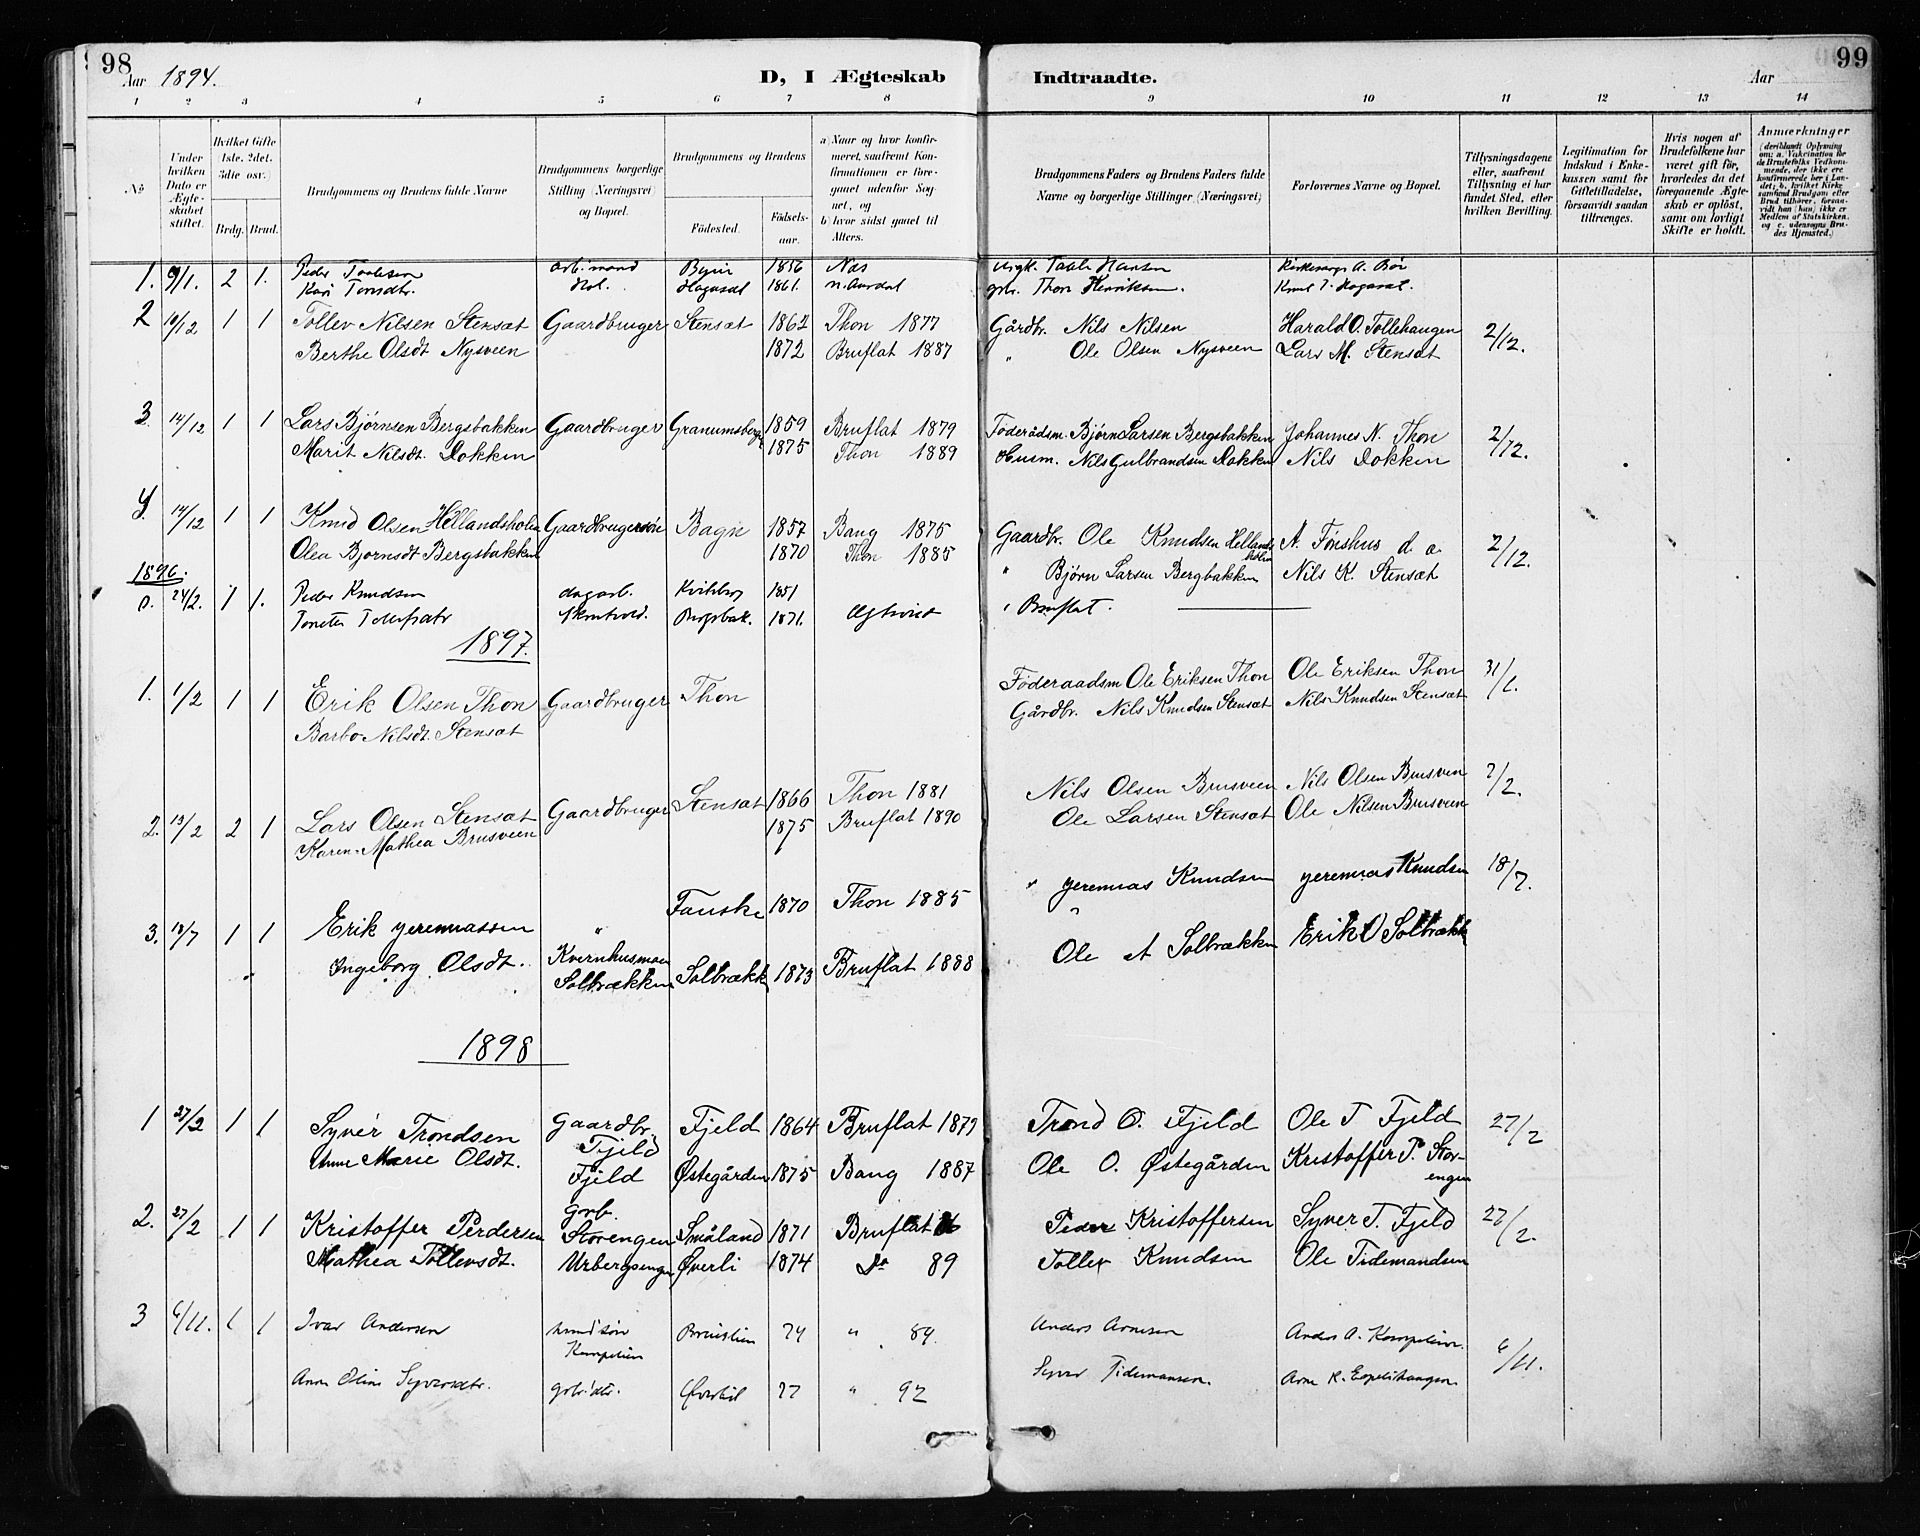 98
Aar 1894.
D, I Ægteskab Indtraadte.
Aar
99
1 2 3 4 5 6 7 8 9 10 11 12 13 14
No
Under hvilken Dato er Ægteskabet stiftet.
Hvilket Gifte 1ste. 2det. 3die osv.
Brdg. Brud.
Brudgommens og Brudens fulde Navne
Brudgommens borgerlige Stilling (Næringsvei) og Bopæl.
Brudgommens og Brudens
Fødested.
Fødselsaar.
a) Naar og hvor konfirmeret, saafremt Konfirmationen er foregaaet udenfor Sognet, og
b) hvor sidst gaaet til Alters.
Brudgommens Faders og Brudens Faders fulde Navne og borgerlige Stillinger (Næringsvei)
Forlovernes Navne og Bopæl.
Tillysningsdagene eller, saafremt Tillysning ei har fundet Sted, efter hvilken Bevilling.
Legitimation for Indskud i Enkekassen samt for Giftetilladelse, forsaavidt saadan tiltrænges.
Hvis nogen af Brudefolkene har været gift før, hvorledes da det foregaaende Ægteskab er opløst, samt om lovligt Skifte er holdt.
Anmærkninger
1. 9/1. 2 1. Peder Taalesen 1856 Næs Taale Hansen
Kari Tomdtr. 1861. n. Aurdal Thon Henriksen.
2 10/12 1 1 Tollev Nilsen Stensæt Gaardbruger Stensæt 1862 Thon 1877 Gårdbr. Nils Nilsen Harald O. Tollehaugen 2/12.
Berthe Olsdt Nysveen 1872 Bruflat 1887 " Ole Olsen Nysveen Lars M. Stensæt
3. 14/12 1 1 Lars Bjørnsen Bergsbakken Gaardbruger Granumsberg 1859 Bruflat 1879 Föderådsm. Bjørn Larsen Bergsbakken Johannes N. Thon 2/12.
Marit Nilsdt. Dokken 1875 Thon 1889 Husm. Nils Gulbrandsen Dokken Nils Dokken
4. 14/12 1 1 Knud Olsen Hellandsholm Gaardbrugersøn Bagn 1857 Bang 1875 Gaardbr. Ole Knudsen Hellandsholm A. Fønshus d. a. 2/12.
Olea Bjørnsdt Bergsbakken 1870 Thon 1885 " Bjørn Larsen Bergbakken Nils K. Stensæt
1896.
24/2. 1 1. Peder Knudsen dagarb. 1851 Bruflat.
1871.
1897.
1. 1/2 1 1 Erik Olsen Thon Gaardbruger Thon Föderaadsm Ole Eriksen Thon Ole Eriksen Thon 31/1.
Barbo Nilsdt. Stensæt Gårdbr. Nils Knudsen Stensæt Nils Knudsen Stensæt
2. 13/2 2 1 Lars Olsen Stensæt Gaardbruger Stensæt 1866 Thon 1881 Nils Olsen Brusveen Nils Olsen Brusveen 2/2.
Karen Mathea Brusveen 1875 Bruflat 1890 Ole Larsen Stensæt Ole Nilsen Brusveen
3. 18/7 1 1 Erik yeremiassen " Fauske 1870 Thon 1885 " yeremias Knudsen yeremias Knudsen 18/7.
Ingeborg Olsdt. Kvernhusmoen Solbrækken Solbrækk 1873 Bruflat 1888 " Ole A Solbrækken Erik O Solbrækk
1898
1 27/2 1 1 Syver Trondsen Gaardbr. Fjeld Fjeld 1864 Bruflat 1879 Trond O. Fjeld Ole T Fjeld 27/2
Anne Marie Olsdt. Fjeld Østegården 1875 Bang 1887 Ole O. Østegården Kristoffer P. Storengen
2. 27/2 1 1 Kristoffer Perdersen Grb. Storengen Småland 1871 Bruflat Peder Kristoffersen Syver T. Fjeld 27/2.
Mathea Tollevsdt. Urbergsengen Øverli 1874 Do 89 Tollev Knudsen Ole Tidemandsen
3 6/11. 1 1 Ivar Andersen 74 " 89. Anders Arnesen Anders A. 6/11.
Anne Oline Syversdtr. grb.dtr. 77 " 92 Syver Tidemansen. Arne K.